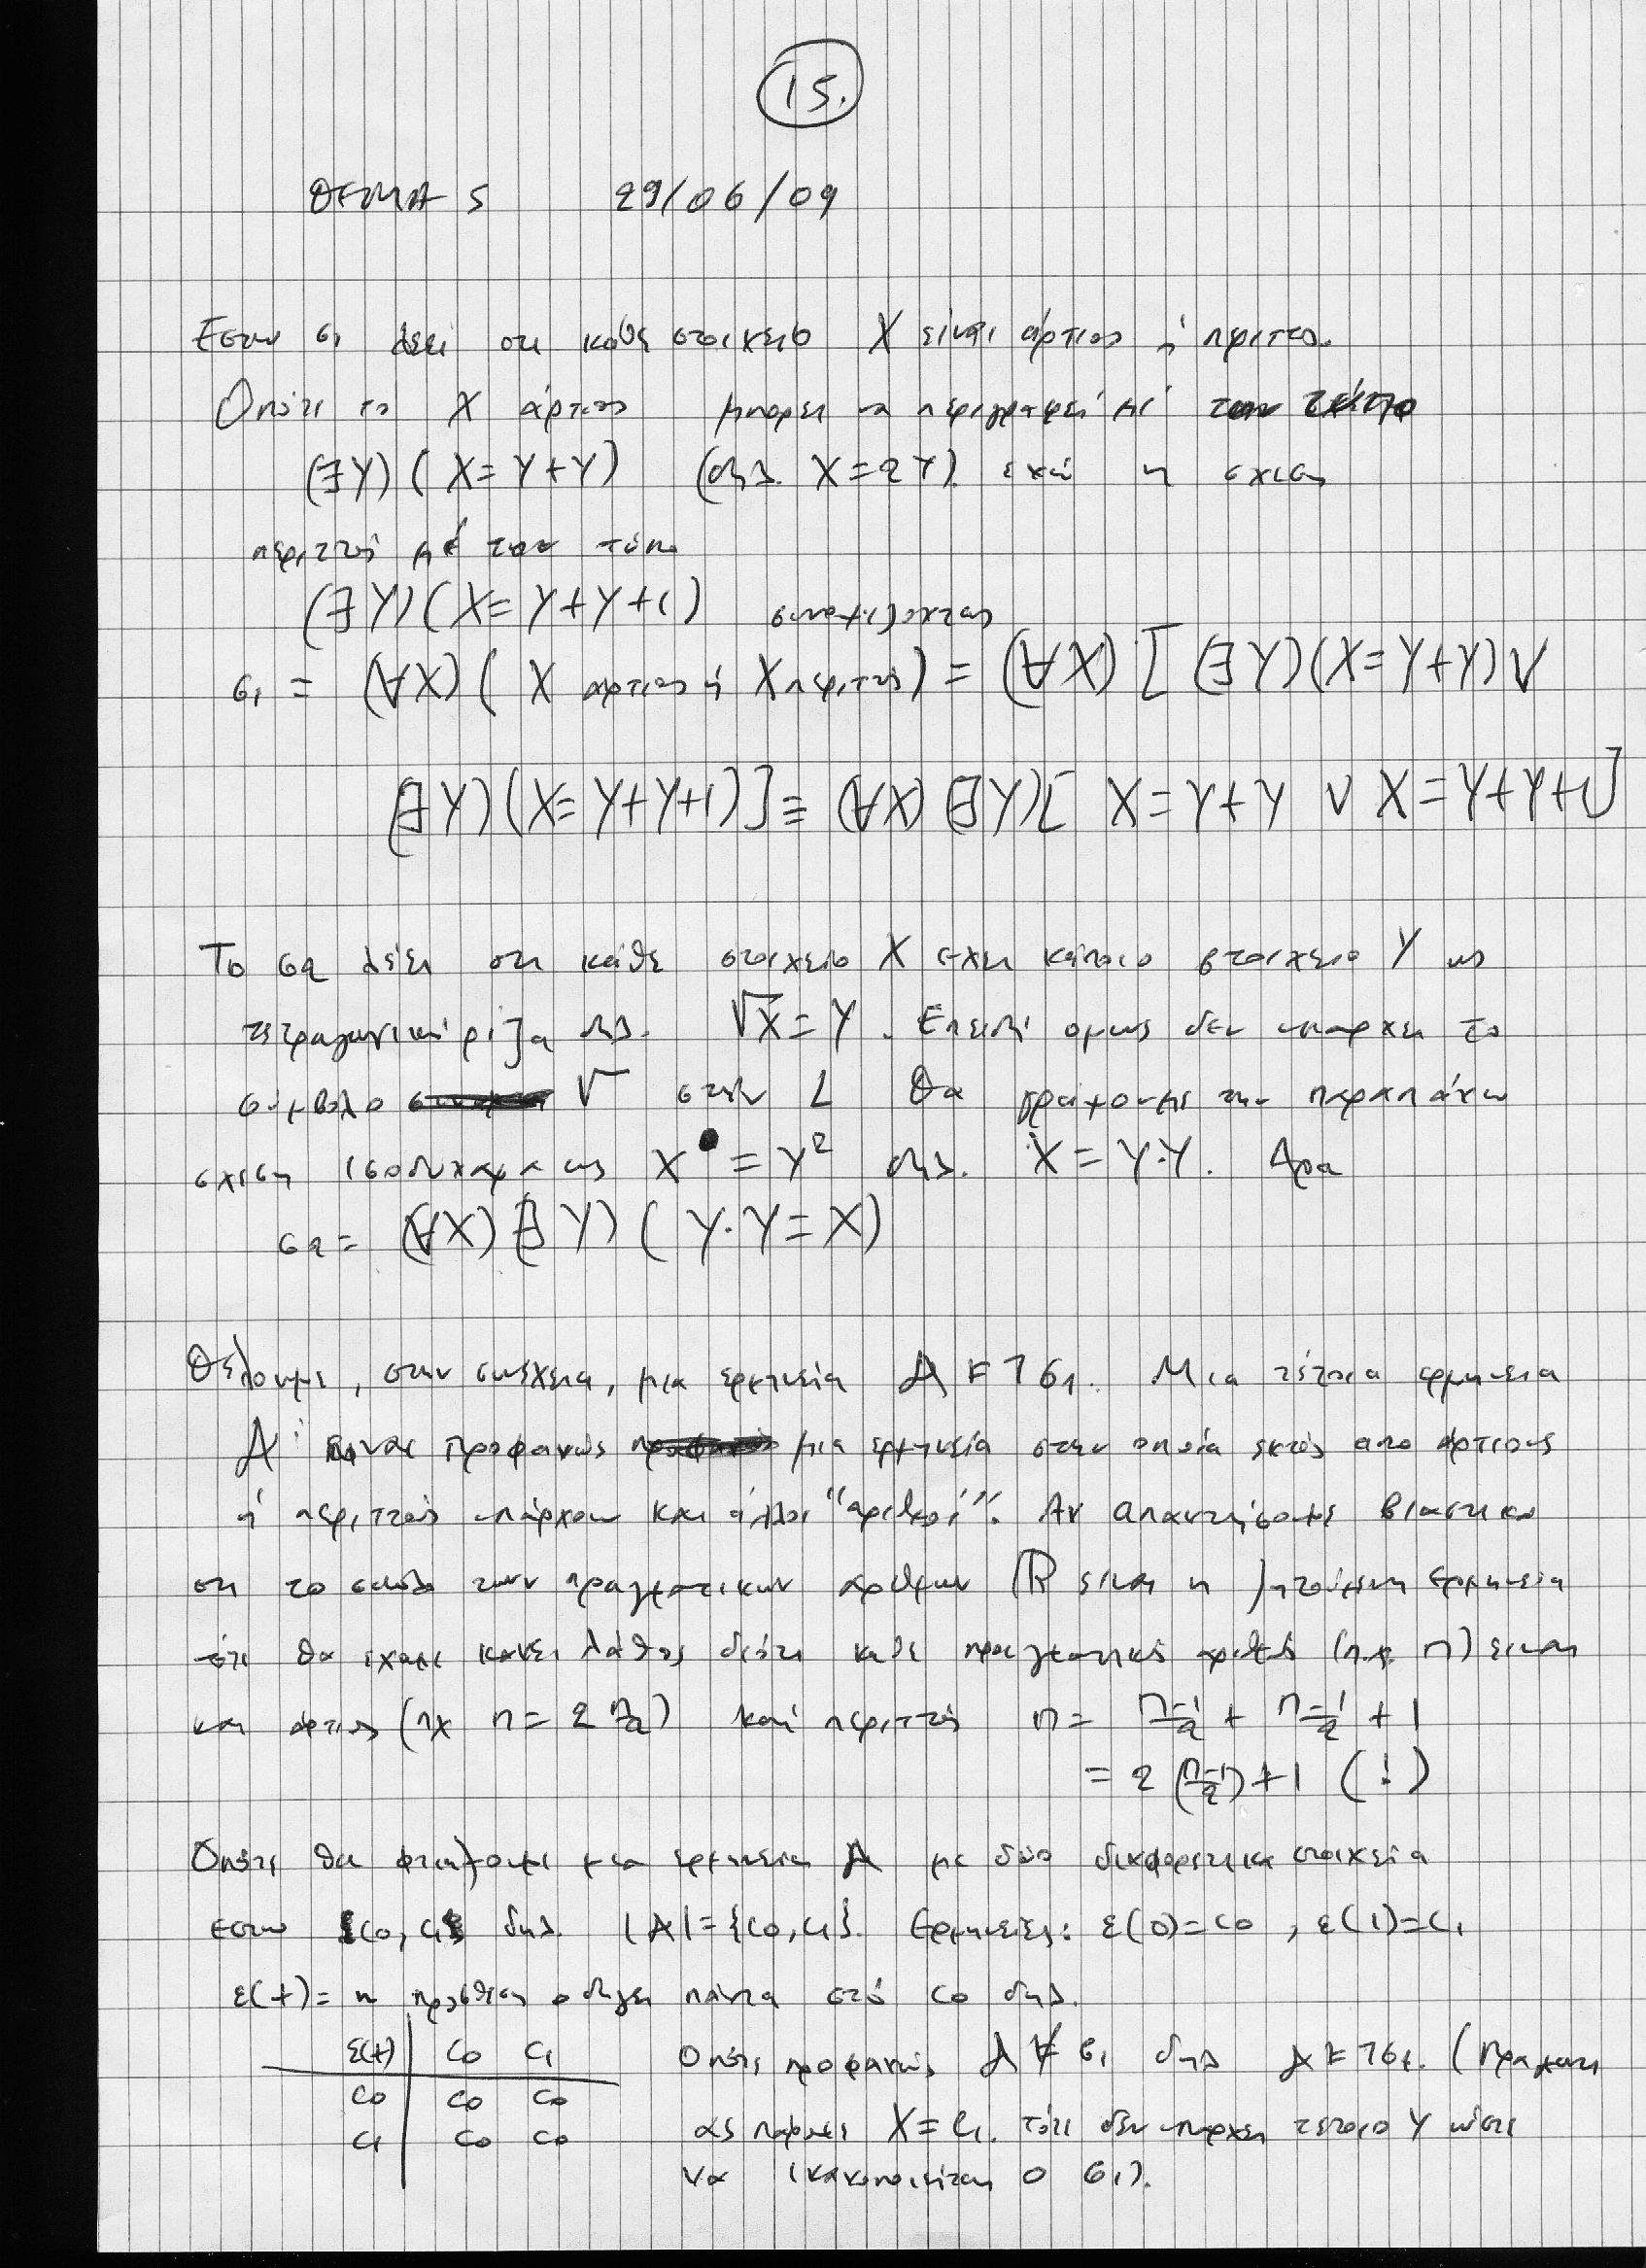 15.
ΘΕΜΑ 5 29/06/09
Εστω σ1 λεει οτι καθε στοιχειο Χ είναι άρτιος ή περιττος.
Οπότε το Χ άρτιος μπορει να περιγραφεί με τον τύπο
(∃Υ)(Χ=Υ+Υ) (δηλ. Χ=2Υ). ενώ η σχεση
περιττός με τον τύπο
(∃Υ)(Χ=Υ+Υ+1) συνοψίζοντας
σ1 = (∀Χ)(Χ αρτιος ή Χ περιττός) = (∀Χ)[(∃Υ)(Χ=Υ+Υ)∨
(∃Υ)(Χ=Υ+Υ+1)] ≡ (∀Χ)(∃Υ)[Χ=Υ+Υ ∨ Χ=Υ+Υ+1]
Το σ2 λέει οτι κάθε στοιχειο Χ εχει κάποιο στοιχειο Υ ως
τετραγωνική ρίζα δηλ. √Χ=Υ. Επειδή ομως δεν υπαρχει το
σύμβολο √ στην L θα γράψουμε την παραπάνω
σχεση ισοδυναμα ως Χ=Υ² δηλ. Χ=Υ·Υ. Αρα
σ2= (∀Χ)(∃Υ)(Υ·Υ=Χ)
Θέλουμε, στην συνέχεια, μια ερμηνεία A⊨¬σ1. Μια τέτοια ερμηνεια
A είναι προφανώς μια ερμηνεία στην οποία εκτός απο άρτιους
ή περιττούς υπάρχουν και άλλοι "αριθμοί". Αν απαντήσουμε βιαστικα
οτι το συνολο των πραγματικων αριθμων ℝ ειναι η ζητούμενη ερμηνεια
τότε θα εχουμε κανει λάθος διότι καθε πραγματικός αριθμός (π.χ. π) ειναι
και άρτιος (πχ π=2 π/2) και περιττός π= π-1/2 + π-1/2 + 1
= 2(π-1/2)+1 (!)
Οπότε θα φτιαξουμε μια ερμηνεια A με δύο διαφορετικα στοιχεία
εστω {c0, c1} δηλ. |A|={c0,c1}. Ερμηνείες: ε(0)=c0 , ε(1)=c1
ε(+)= η πρόσθεση οδηγει πάντα στό c0 δηλ.
ε(+) c0 c1
c0 c0 c0
c1 c0 c0
Οπότε προφανώς A⊭σ1 δηλ A⊨¬σ1. (Πραγματι
ας πάρουμε Χ=c1. τότε δεν υπαρχει τετοιο Υ ώστε
να ικανοποιείται ο σ1).